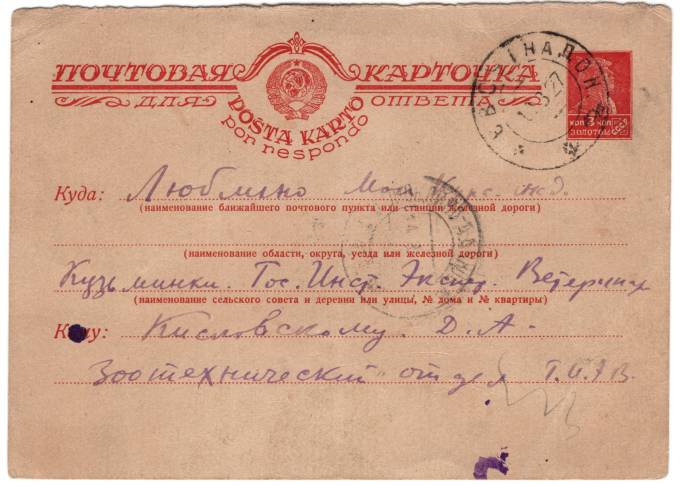 ПОЧТОВАЯ КАРТОЧКА
ДЛЯ ОТВЕТА
POSTA KARTO
por respondo
КОП 3 КОП
ЗОЛОТОМ
Куда: Люблино Мос Курс. жд.
(наименование ближайшего почтового пункта или станции железной дороги)
(наименование области, округа, уезда или железной дороги)
Кузьминки. Гос. Инст. Экспер. Ветеринар
(наименование сельского совета и деревни или улицы, № дома и № квартиры)
Кому: Кисловскому. Д. А.
Зоотехнический отдел Г.И.Э.В.